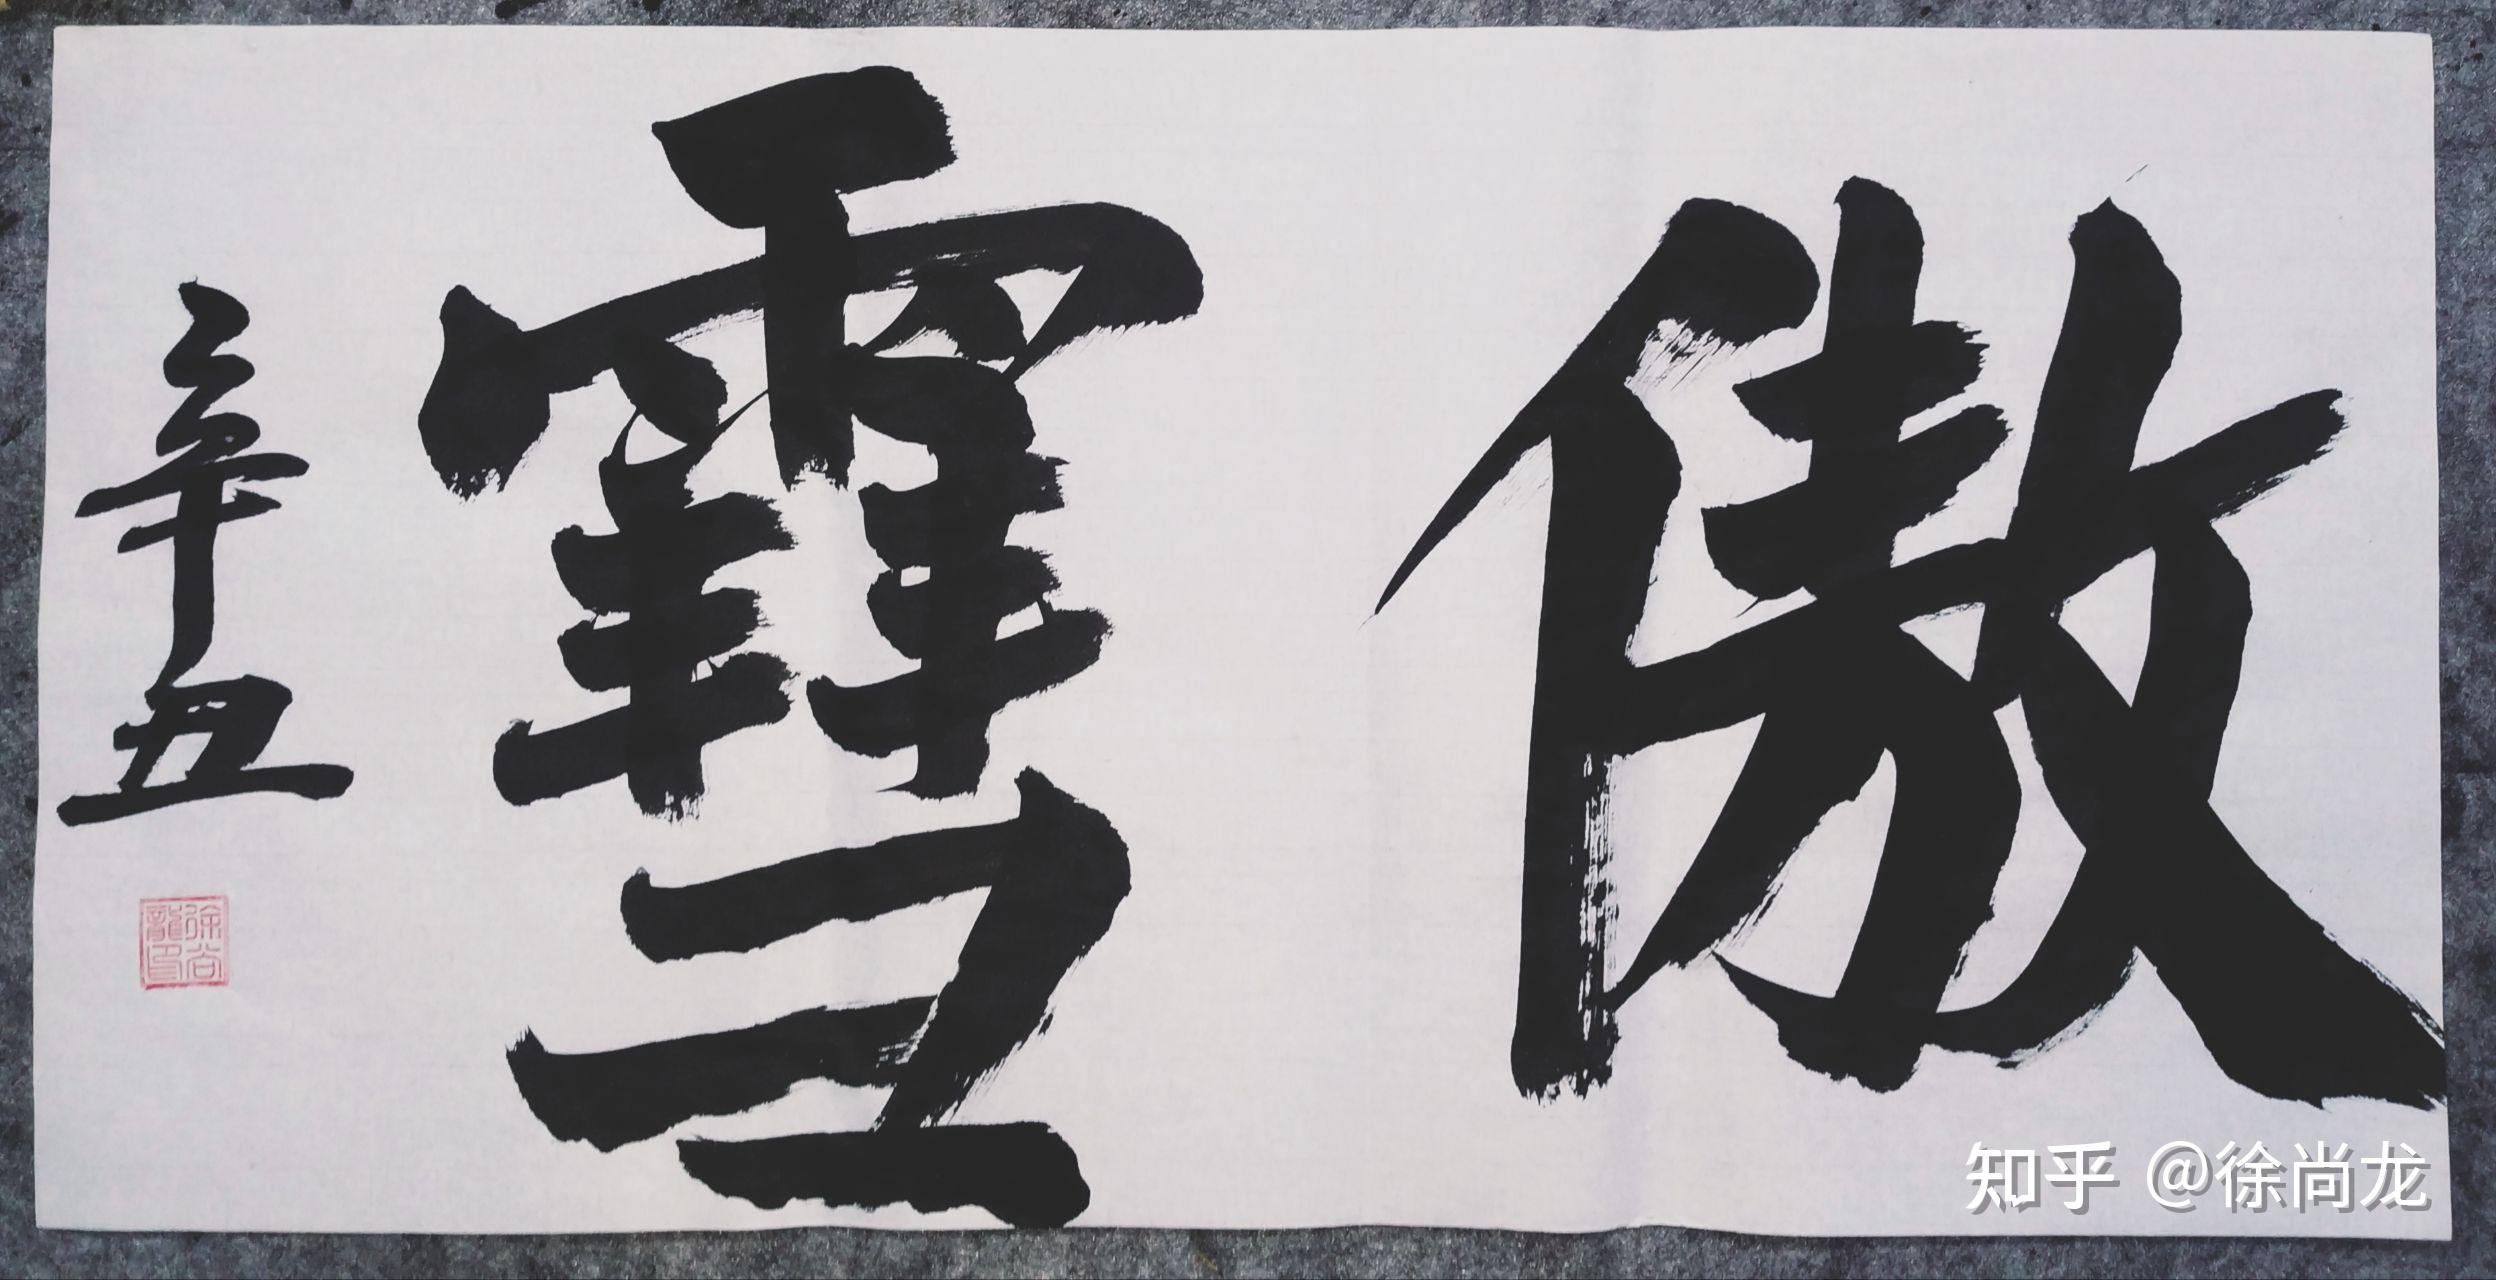 傲䨮
辛丑
徐尚龍印
知乎 @徐尚龙